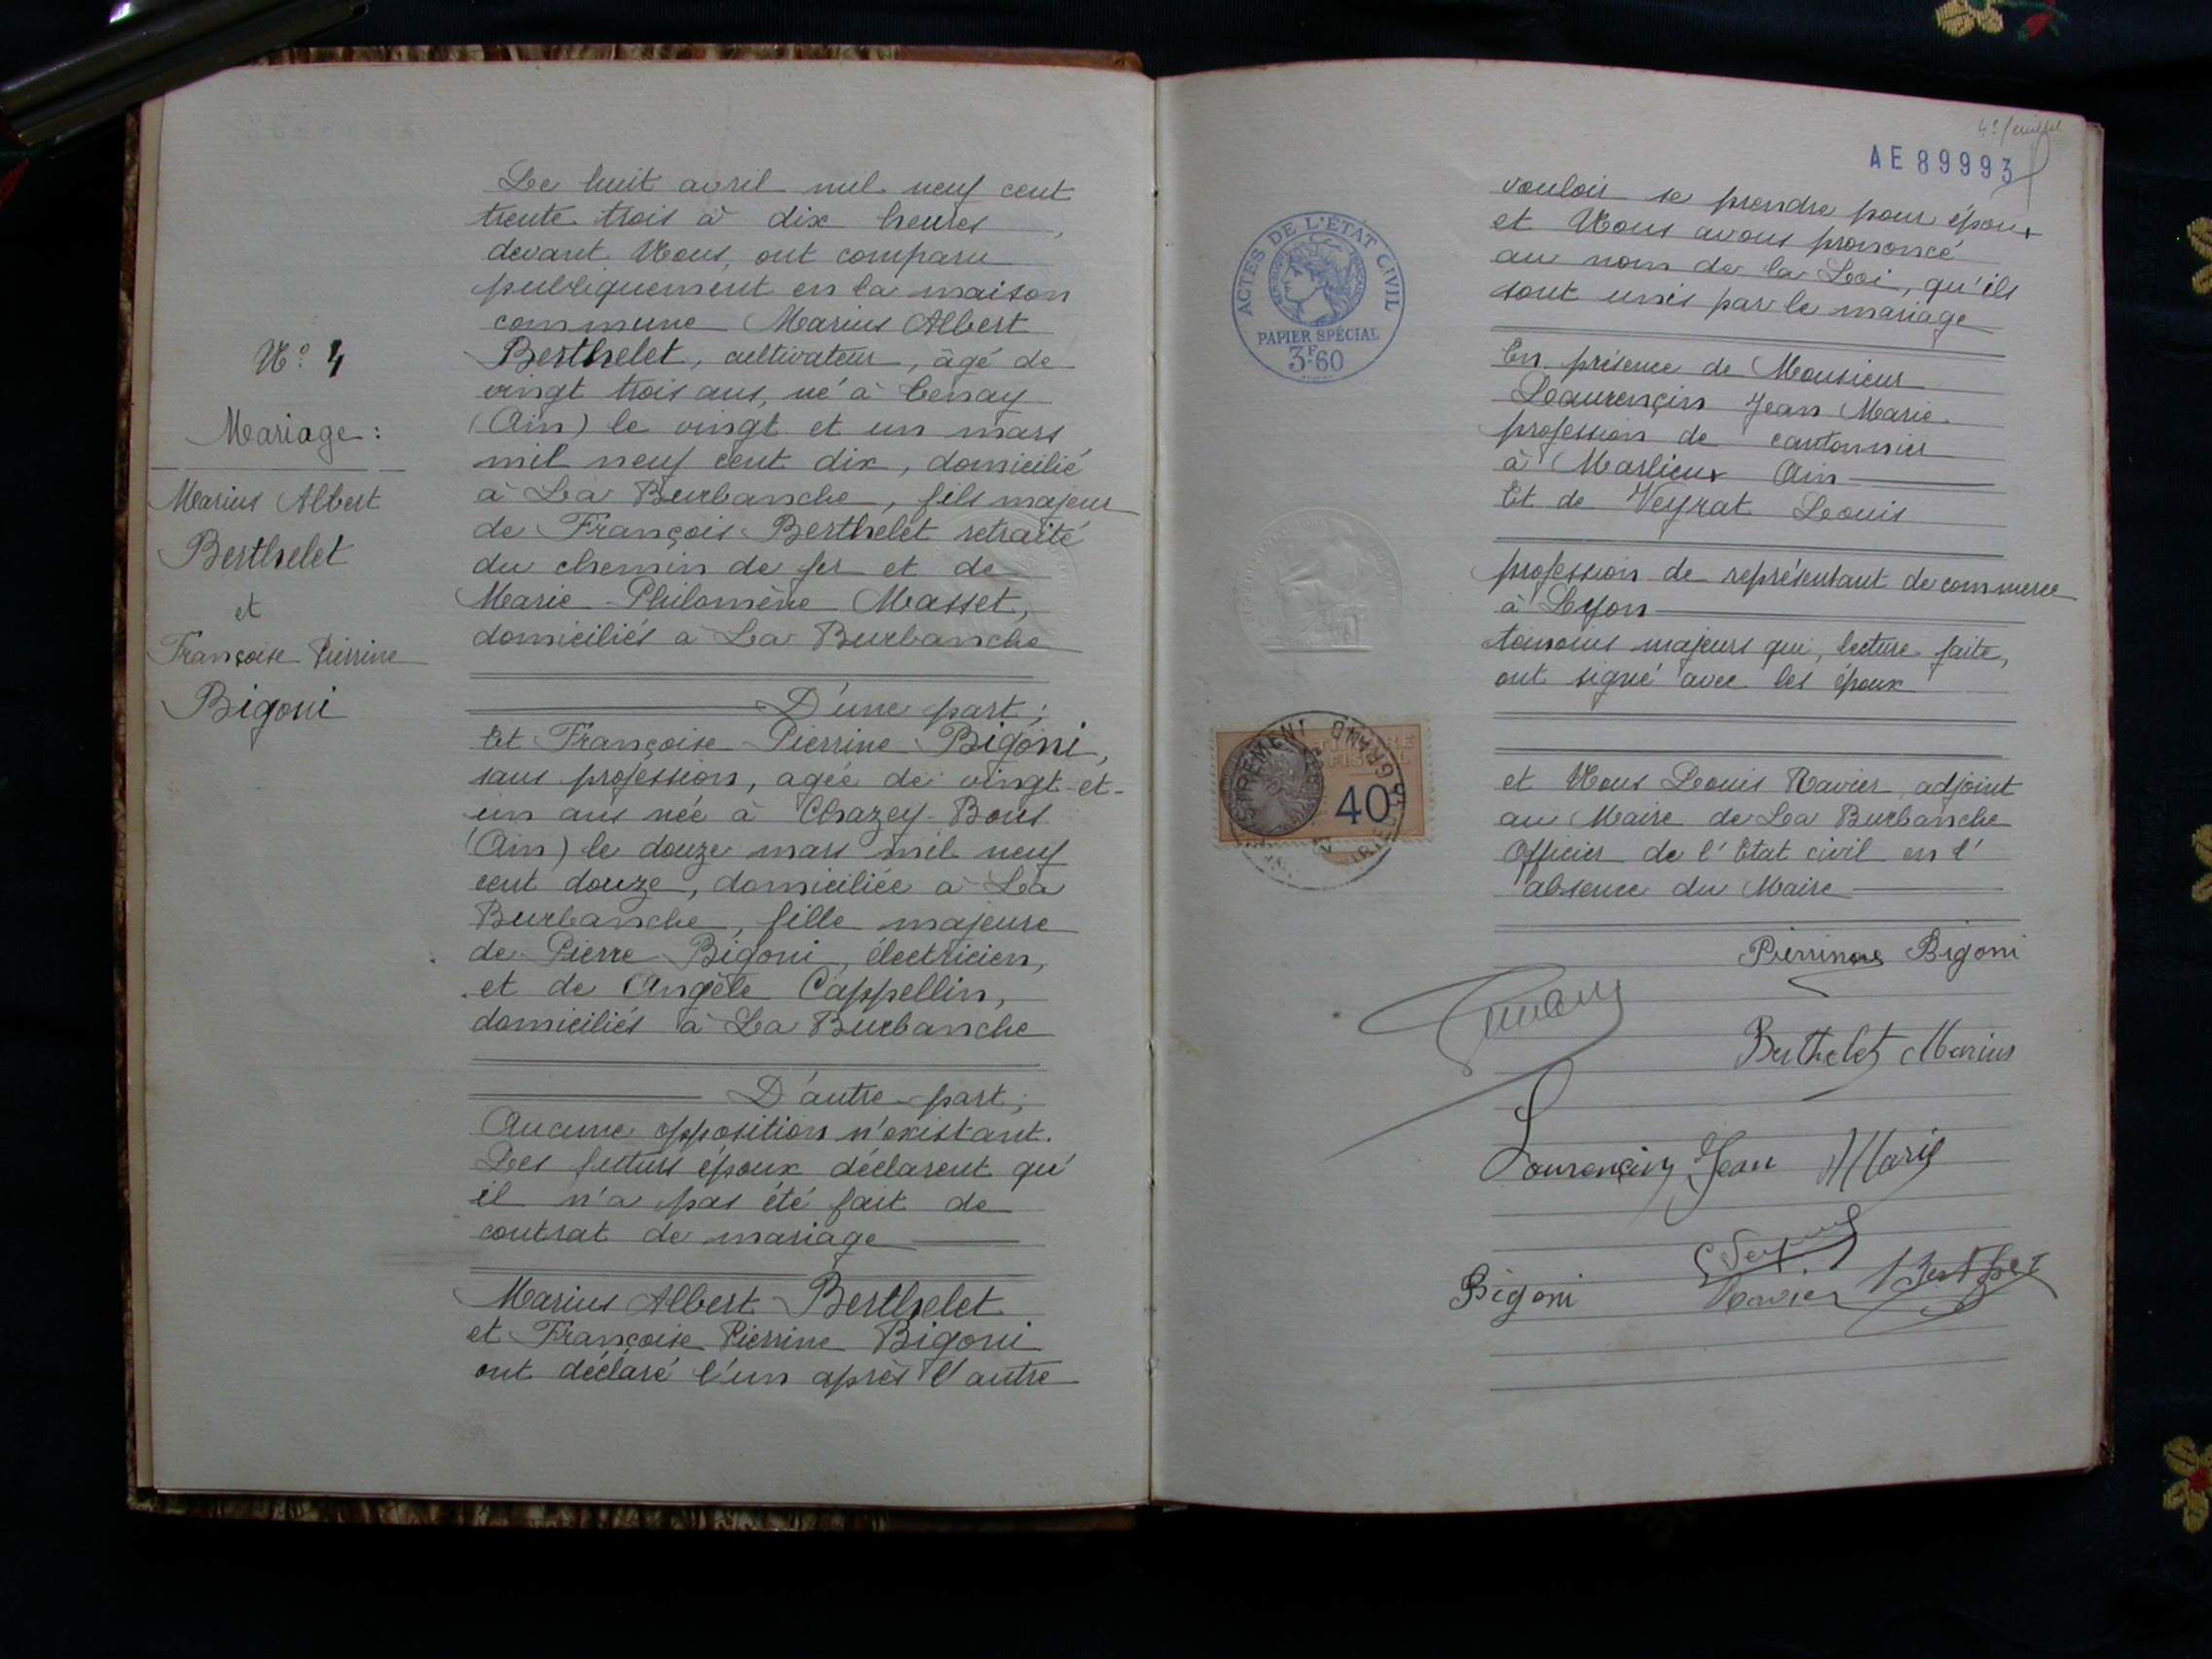 N° 4
Mariage :
Marius Albert
Berthelet
et
Françoise Pierrine
Bigoni
Le huit avril mil neuf cent
trente trois à dix heures,
devant Nous, ont comparu
publiquement en la maison
commune Marius Albert
Berthelet, cultivateur, âgé de
vingt trois ans, né à Tenay
(Ain) le vingt et un mars
mil neuf cent dix, domicilié
à La Burbanche, fils majeur
de François Berthelet retraité
du chemin de fer et de
Marie Philomène Masset,
domiciliés à La Burbanche
D'une part ;
Et Françoise Pierrine Bigoni,
sans profession, agée de vingt-et-
un ans née à Chazey-Bons
(Ain) le douze mars mil neuf
cent douze, domiciliée à La
Burbanche, fille majeure
de Pierre Bigoni, électricien,
et de Angèle Cappellin,
domiciliés à La Burbanche
D'autre part ;
Aucune opposition n'existant.
Les futurs époux déclarent qu'
il n'a pas été fait de
contrat de mariage
Marius Albert Berthelet
et Françoise Pierrine Bigoni
ont déclaré l'un après l'autre
AE 89993
ACTES DE L'ÉTAT CIVIL
PAPIER SPÉCIAL
3F60
vouloir se prendre pour époux
et Nous avons prononcé
au nom de la Loi, qu'ils
sont unis par le mariage
En présence de Monsieur
Laurençin Jean Marie
profession de cantonnier
à Marlieux Ain
Et de Veyrat Louis
profession de représentant de commerce
à Lyon
témoins majeurs qui, lecture faite,
ont signé avec les époux
40c
et Nous Louis Ravier, adjoint
au Maire de La Burbanche
Officier de l'Etat civil en l'
absence du Maire
Pierrine Bigoni
Berthelet Marius
Laurençin Jean Marie
Bigoni
Ravier